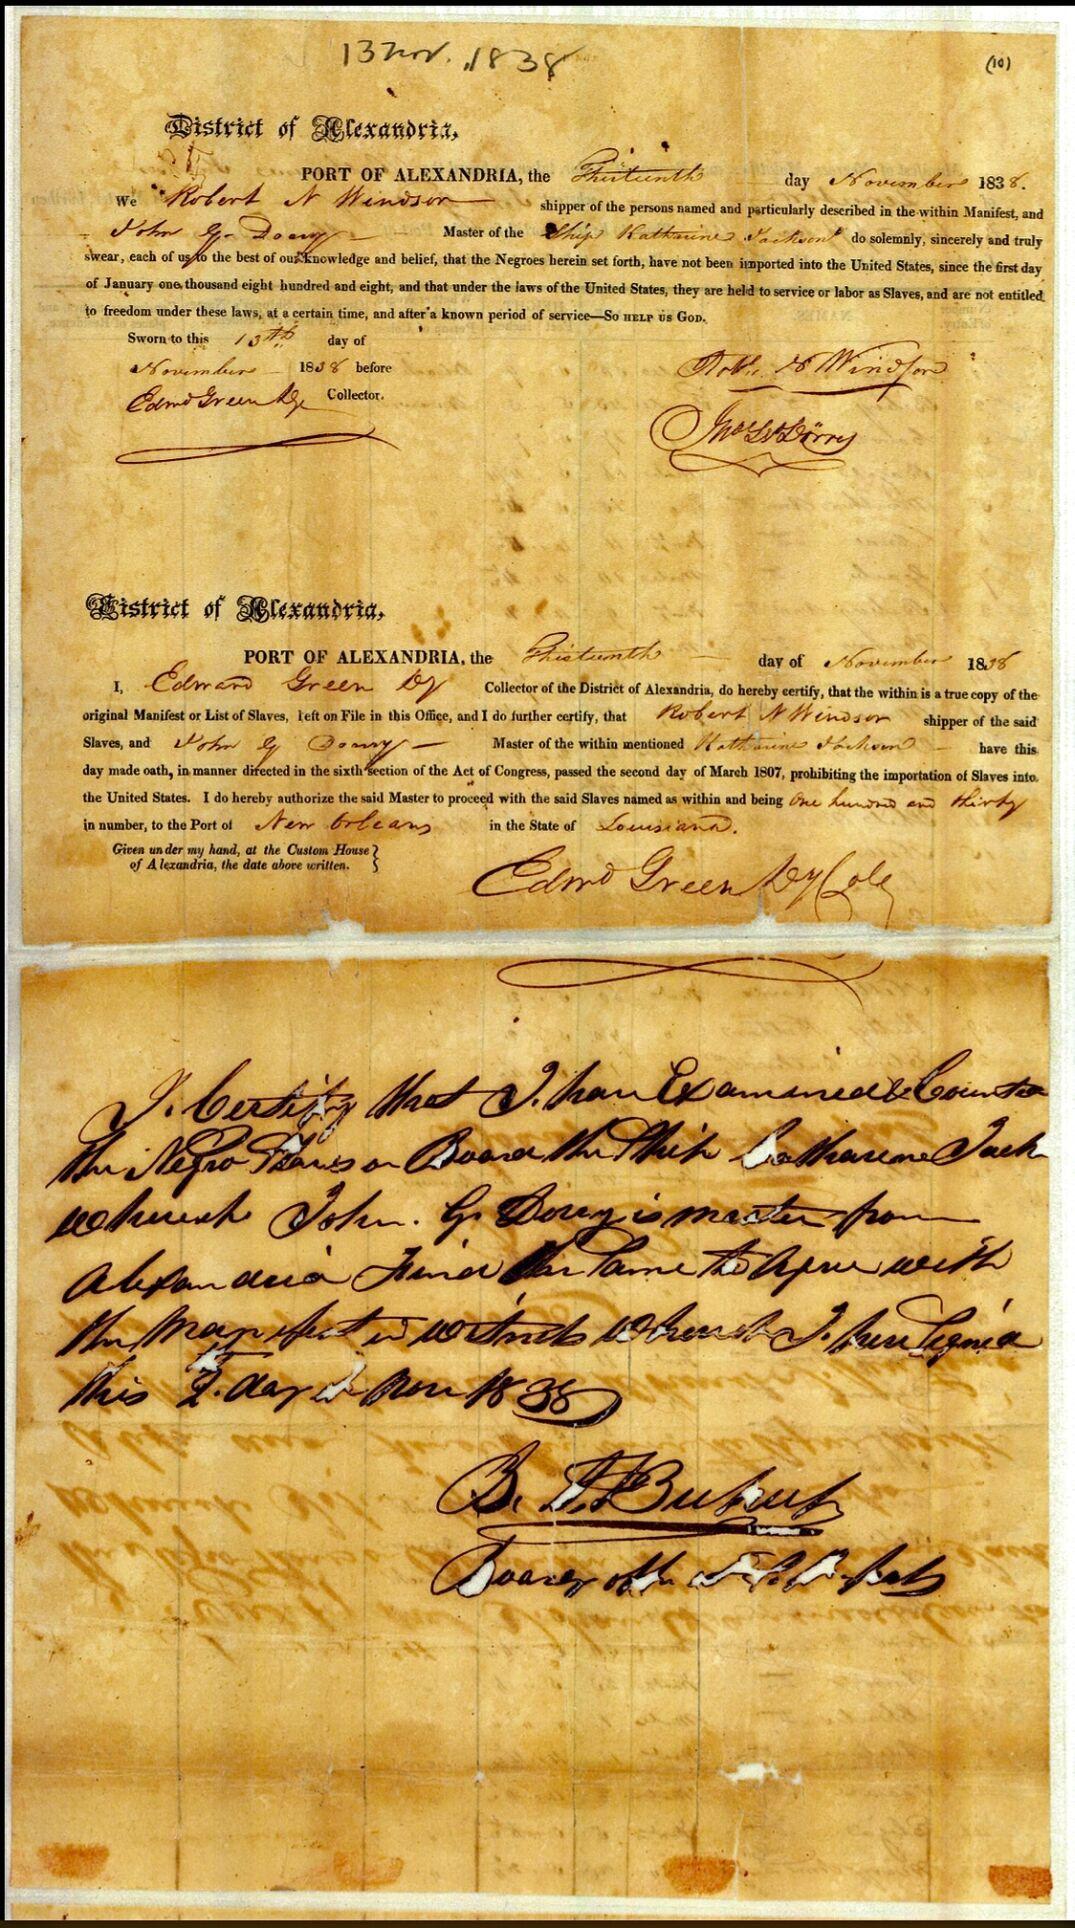 13 Nov. 1838
(10)
District of Alexandria,
PORT OF ALEXANDRIA, the Thirteenth day November 1838.
We Robert N Windsor shipper of the persons named and particularly described in the within Manifest, and
John G. Master of the Ship Katharine Jackson do solemnly, sincerely and truly
swear, each of us to the best of our knowledge and belief, that the Negroes herein set forth, have not been imported into the United States, since the first day
of January one thousand eight hundred and eight, and that under the laws of the United States, they are held to service or labor as Slaves, and are not entitled
to freedom under these laws, at a certain time, and after a known period of service—So HELP US GOD.
Sworn to this 13th day of
November 1838 before
Edmd Green Dy Collector.
Robt. N Windsor
District of Alexandria,
PORT OF ALEXANDRIA, the Thirteenth day of November 1838
I, Edward Green Dy Collector of the District of Alexandria, do hereby certify, that the within is a true copy of the
original Manifest or List of Slaves, left on File in this Office, and I do further certify, that Robert N Windsor shipper of the said
Slaves, and John G Master of the within mentioned Katharine Jackson have this
day made oath, in manner directed in the sixth section of the Act of Congress, passed the second day of March 1807, prohibiting the importation of Slaves into
the United States. I do hereby authorize the said Master to proceed with the said Slaves named as within and being One hundred and thirty
in number, to the Port of New Orleans in the State of Louisiana.
Given under my hand, at the Custom House
of Alexandria, the date above written.
Edmd Green Dy Cole
I. Certify that I. have Examined &
the Negro Slaves on Board the Ship Catharine Jack
whereof John. G. is master from
Alexandria find the same to Agree with
the Manifest in witness whereof I. here Signed
this day of Nov 1838
B.
of the